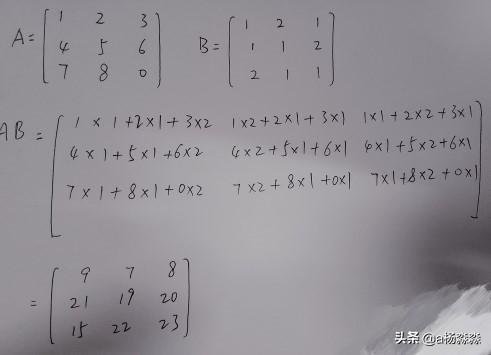 A = [ 1 2 3 B = [ 1 2 1
4 5 6 1 1 2
7 8 0 ] 2 1 1 ]
AB = [ 1 × 1 + 2×1 + 3×2 1×2 + 2×1 + 3×1 1×1 + 2×2 + 3×1
4 × 1 + 5×1 + 6×2 4×2 + 5×1 + 6×1 4×1 + 5×2 + 6×1
7 × 1 + 8×1 + 0×2 7×2 + 8×1 + 0×1 7×1 + 8×2 + 0×1 ]
= [ 9 7 8
21 19 20
15 22 23 ]
头条 @a杨淼淼